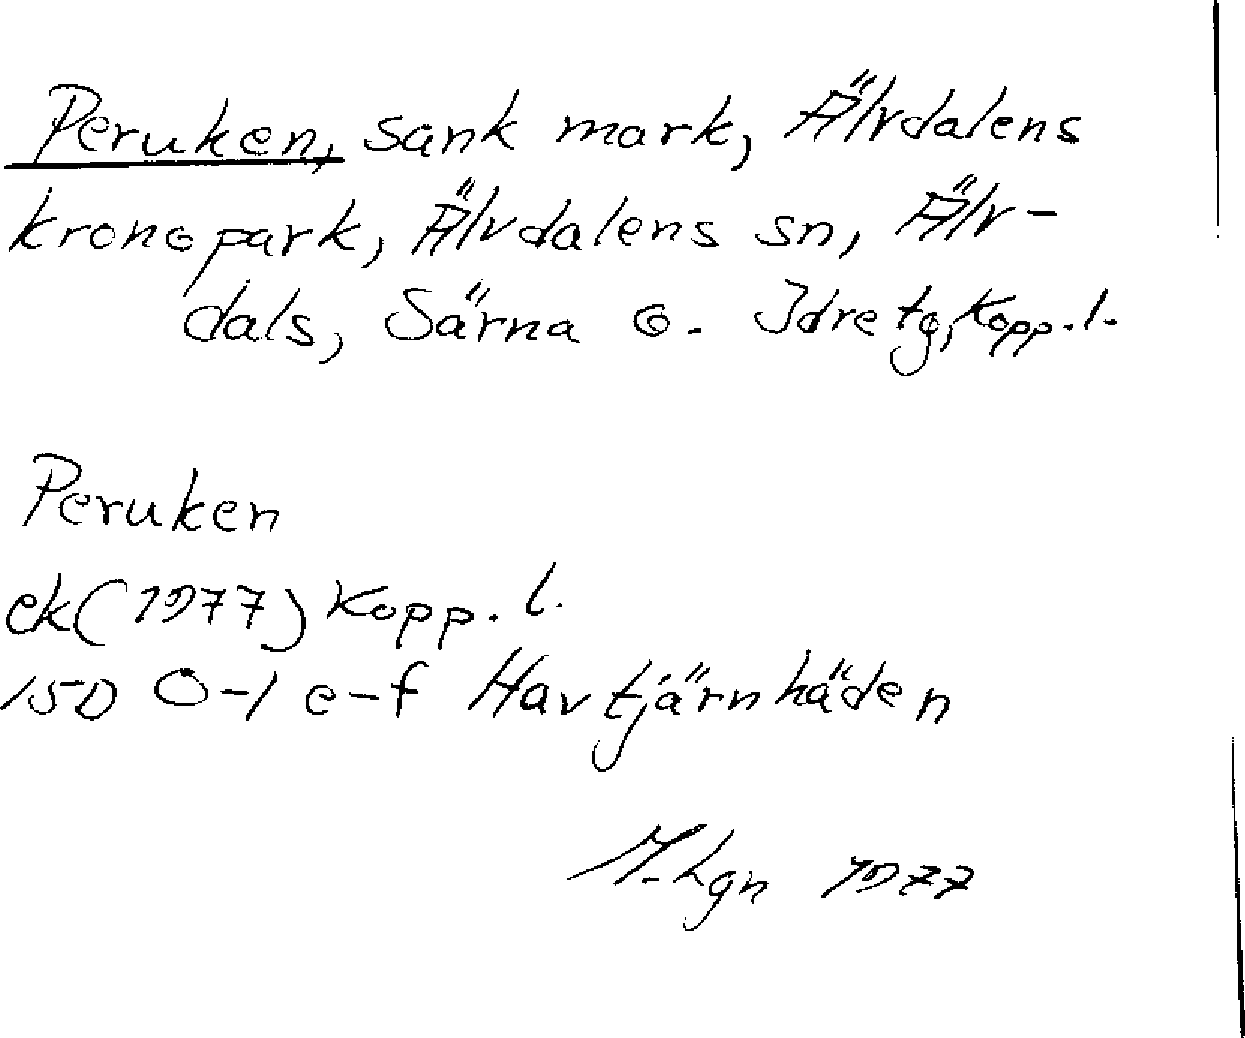 Peruken, sank mark, Älvdalens
kronopark, Älvdalens sn, Älv-
dals, Särna o. Idre tg, Kopp. l.
Peruken
ek (1977) Kopp. l.
15D 0-1 e-f Havtjärnhäden
1977